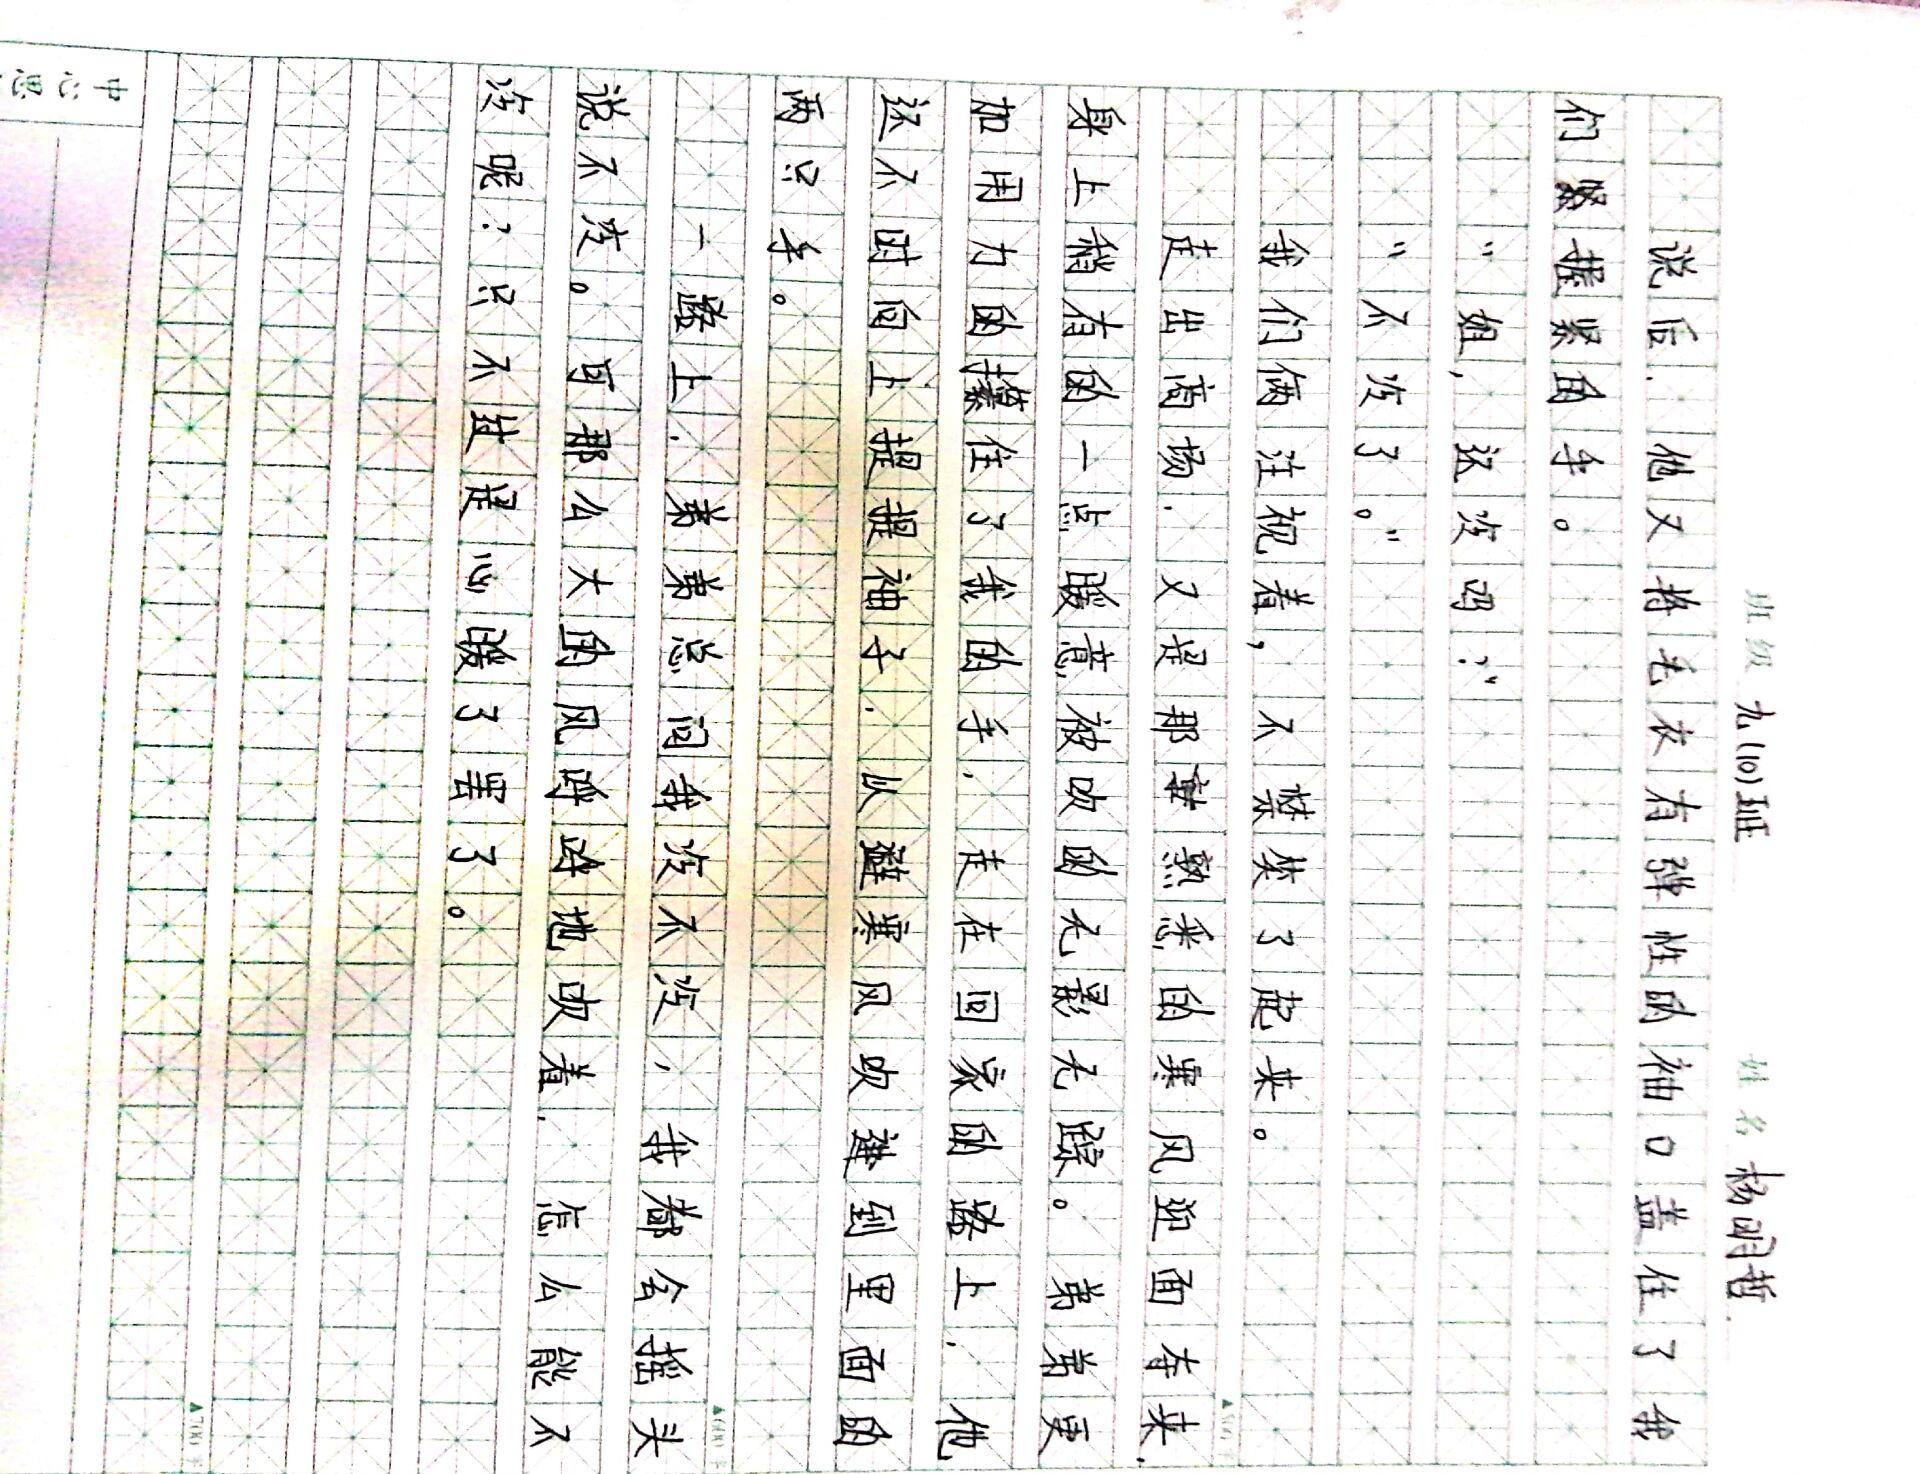 班级 九(10)班 姓名 杨明哲
说后，他又将毛衣有弹性的袖口盖住了我
们紧握紧的手。
“姐，还冷吗？”
“不冷了。”
我们俩注视着，不禁笑了起来。
走出商场，又是那熟悉的寒风迎面奔来，
身上稍有的一点暖意被吹的无影无踪。弟弟更
加用力的攥住了我的手，走在回家的路上，他
还不时向上提提袖子，以避寒风吹进到里面的
两只手。
一路上，弟弟总问我冷不冷，我都会摇头
说不冷。可那么大的风哗哗地吹着，怎么能不
冷呢？只不过是心暖了罢了。
▲600字
▲700字